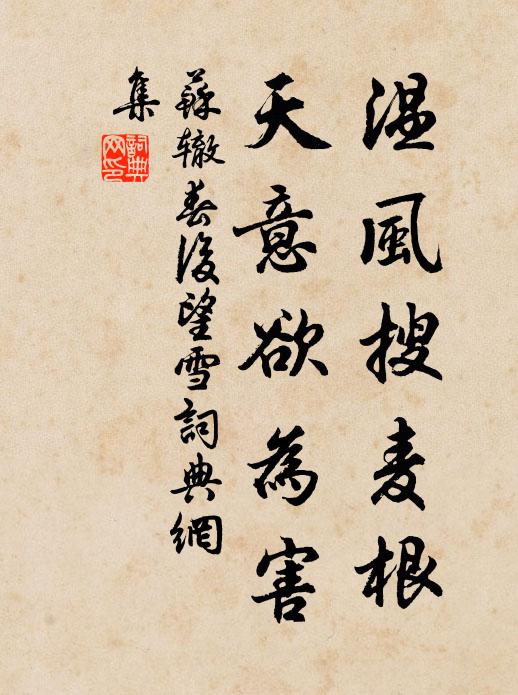 温風搜麦根
天意欲為害
蘇辙春後望雪詞典網
集
詞典
网印